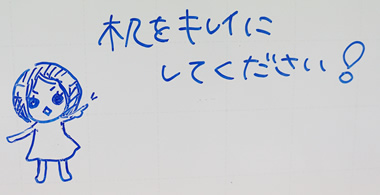 机をキレイに
してください!